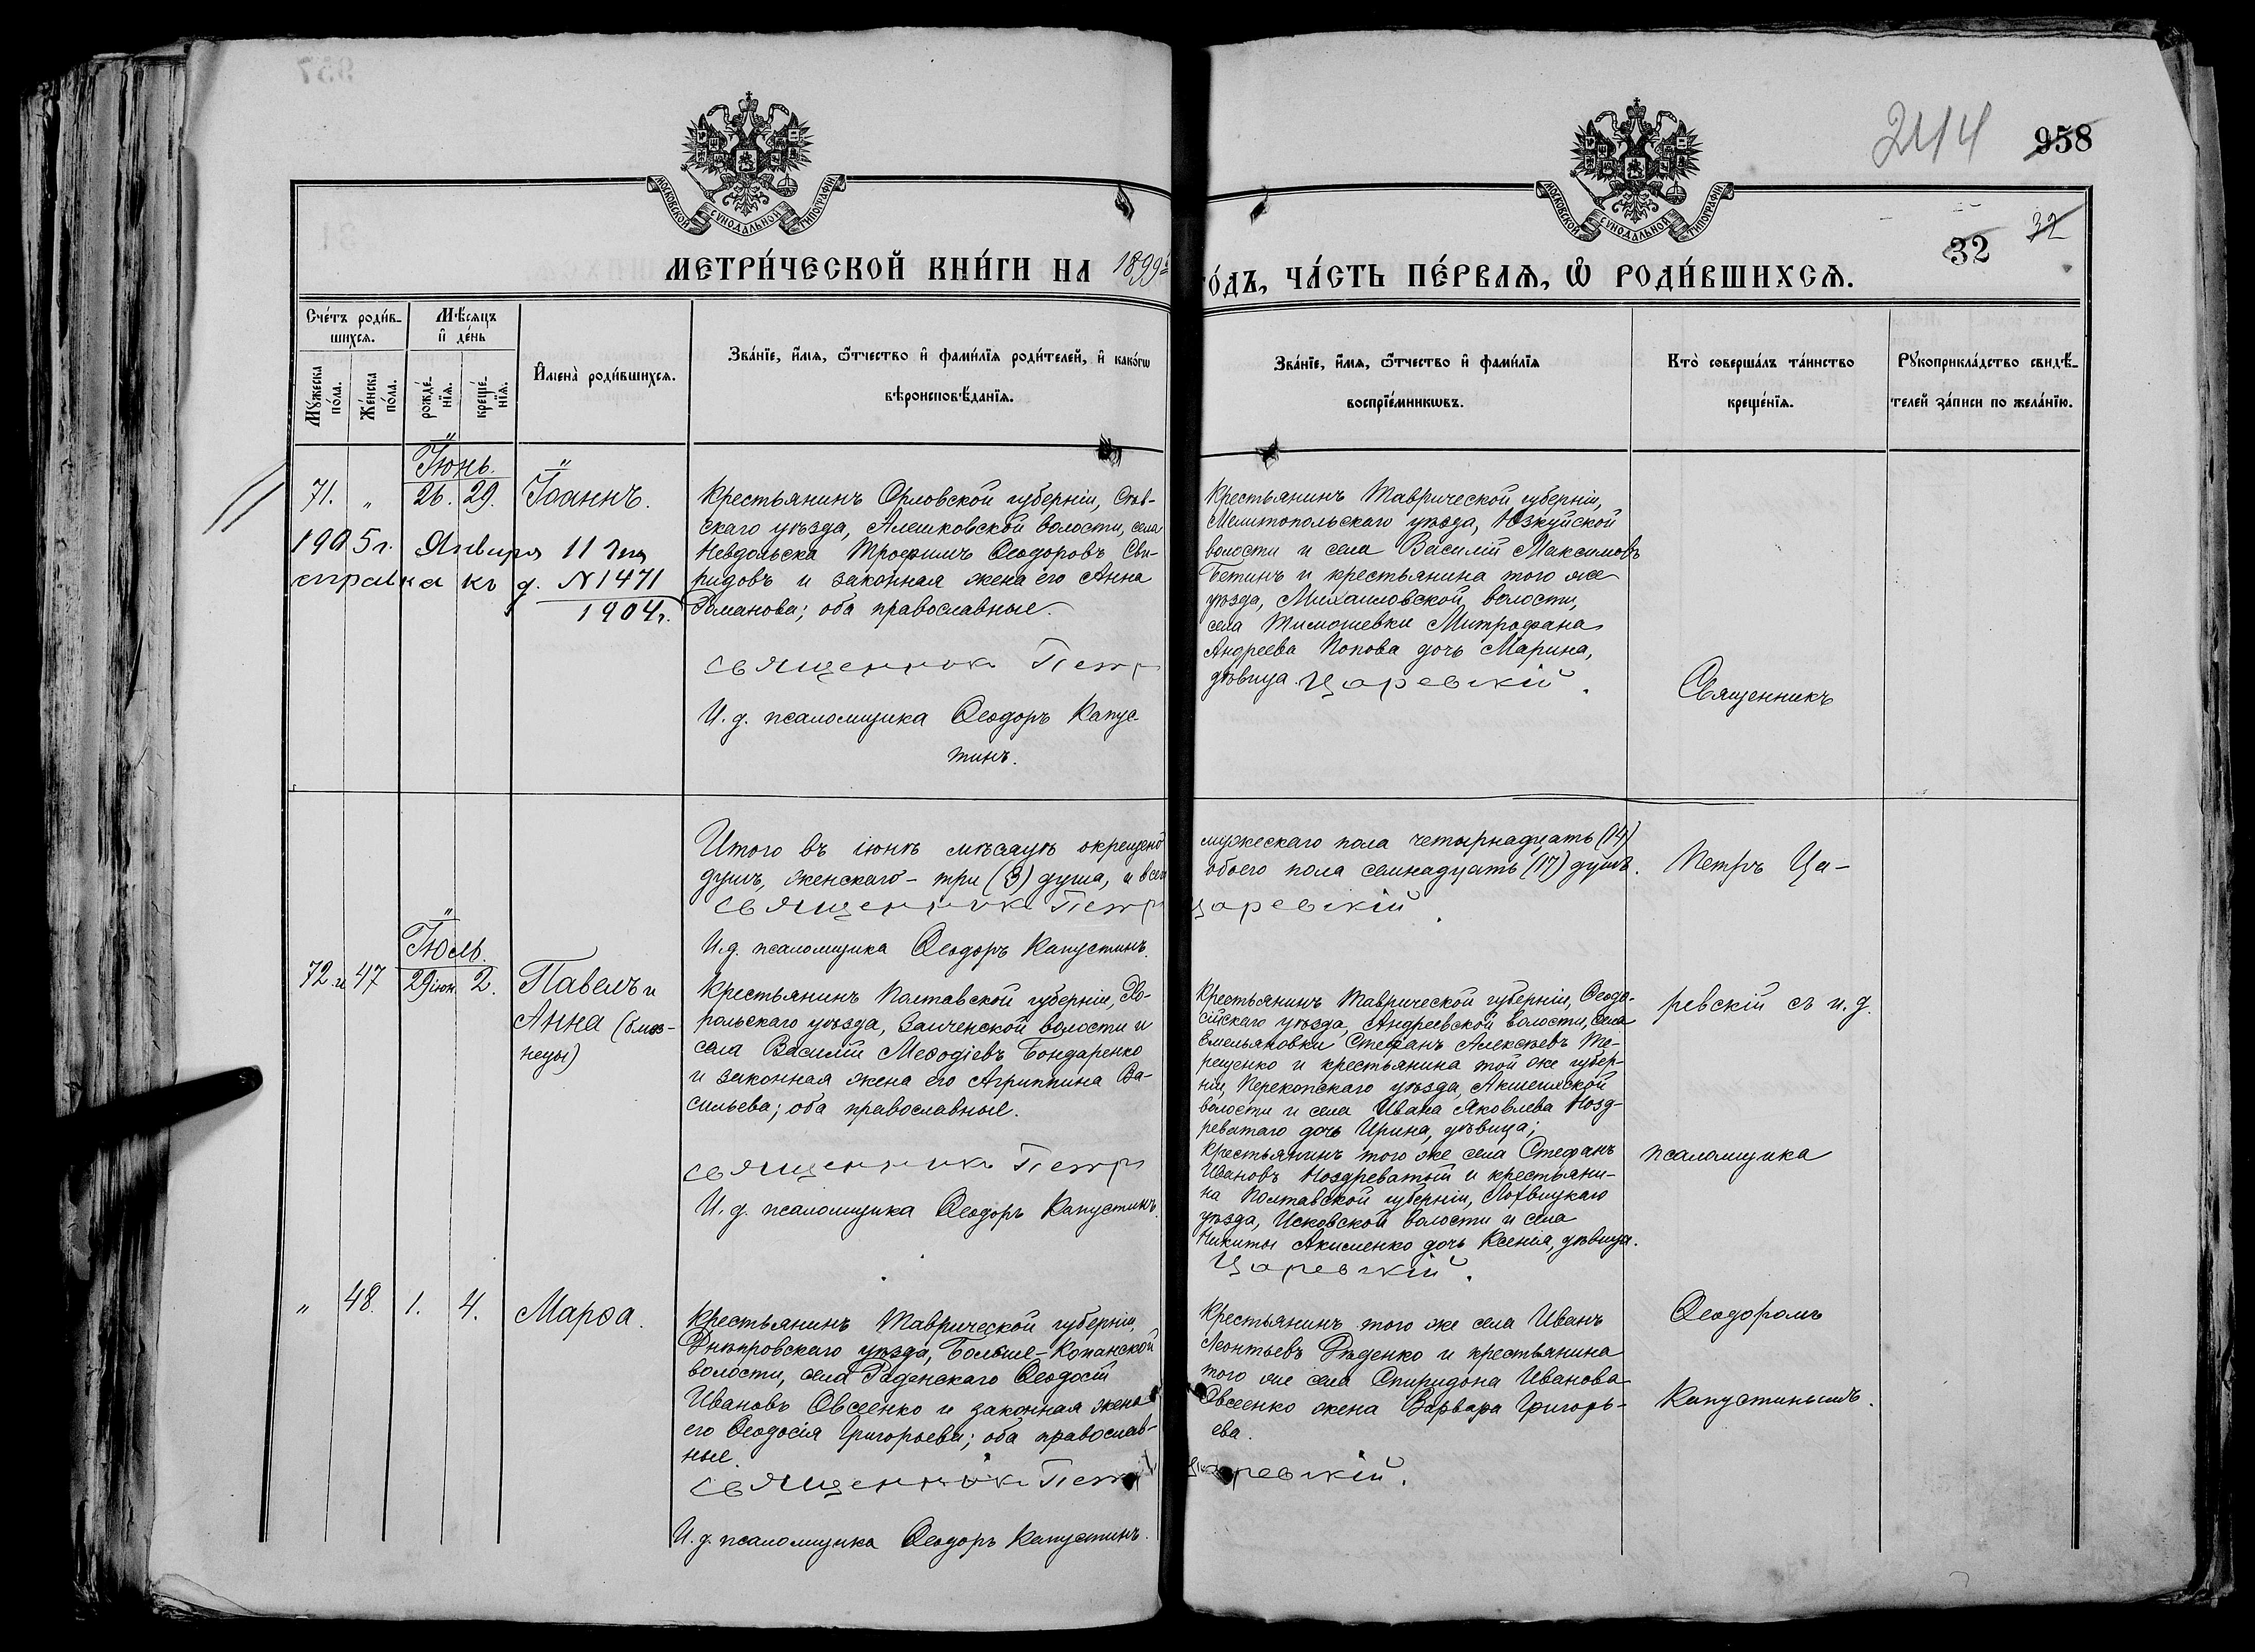 244 958
МОСКОВСКОЙ СѴНОДАЛЬНОЙ ТИПОГРАФІИ
МОСКОВСКОЙ СѴНОДАЛЬНОЙ ТИПОГРАФІИ
32 32
МЕТРИ́ЧЕСКОЙ КНИ́ГИ НА 1899й
ГО́ДЪ, ЧА́СТЬ ПЕ́РВАѦ, Ѡ РОДИ́ВШИХСѦ.
Сче́тъ роди́в-
шихсѧ.
Мꙋ́жеска по́ла.
Же́нска по́ла.
Мѣ́сѧцъ
и҆ де́нь
рожде́-
нїѧ.
креще́-
нїѧ.
И҆мена̀ роди́вшихсѧ.
Зва́нїе, и҆́мѧ, ѻ҆́тчество и҆ фами́лїѧ роди́телей, и҆ како́гѡ
вѣроисповѣ́данїѧ.
Зва́нїе, и҆́мѧ, ѻ҆́тчество и҆ фами́лїѧ
воспрїе́мникѡвъ.
Кто̀ соверша́лъ та́инство
креще́нїѧ.
Рꙋкоприкла́дство свидѣ́-
телей за́писи по жела́нїю.
Іюнь.
71. " 26. 29. Іоаннъ.
1905г. Января 11 дня
справка къ д. N 1471
1904г.
Крестьянинъ Орловской губерніи, Сѣв-
скаго уѣзда, Алешковской волости, села
Невдольска Трофимъ Ѳеодоровъ Сви-
ридовъ и законная жена его Анна
Романова; оба православные.
Священникъ Петръ
И. д. псаломщика Ѳеодоръ Капус-
тинъ.
Крестьянинъ Таврической губерніи,
Мелитопольскаго уѣзда, Юзкуйской
волости и села Василій Максимовъ
Бетинъ и крестьянина того же
уѣзда, Михаиловской волости,
села Тимошевки Митрофана
Андреева Попова дочь Марина,
дѣвица. Царевскій.
Священникъ
Итого въ іюнѣ мѣсяцѣ окрещено
душъ, женскаго - три (3) душа, и всего
Священникъ Петръ
И.д. псаломщика Ѳеодоръ Капустинъ.
мужескаго пола четырнадцать (14)
обоего пола семнадцать (17) душъ.
Царевскій.
Петръ Ца-
Іюль.
72. и 47 29 іюн. 2. Павелъ и
Анна (близ-
нецы)
Крестьянинъ Полтавской губерніи, Хо-
рольскаго уѣзда, Заиченской волости и
села Василій Меѳодіевъ Бондаренко
и законная жена его Агриппина Ва-
сильева; оба православные.
Священникъ Петръ
И. д. псаломщика Ѳеодоръ Капустинъ.
Крестьянинъ Таврической губерніи, Ѳеодо-
сійскаго уѣзда, Андреевской волости, села
Емельяновки Стефанъ Алексѣевъ Те-
рещенко и крестьянина той же губер-
ніи, Перекопскаго уѣзда, Акшеихской
волости и села Ивана Яковлева Нозд-
реватаго дочь Ирина, дѣвица;
крестьянинъ того же села Стефанъ
Ивановъ Ноздреватый и крестьяни-
на Полтавской губерніи, Лохвицкаго
уѣзда, Исковской волости и села
Никиты Акименко дочь Ксенія, дѣвица.
Царевскій.
ревскій съ и. д.
псаломщика
" 48. 1. 4. Марѳа.
Крестьянинъ Таврической губерніи,
Днѣпровскаго уѣзда, Больше-Копанской
волости, села Раденскаго Ѳеодосій
Ивановъ Овсеенко и законная жена
его Ѳеодосія Григорьева; оба православ-
ные.
Священникъ Петръ
И. д. псаломщика Ѳеодоръ Капустинъ.
Крестьянинъ того же села Иванъ
Леонтьевъ Дѣденко и крестьянина
того же села Спиридона Иванова
Овсеенко жена Варвара Григорь-
ева.
Царевскій.
Ѳеодоромъ
Капустинымъ.